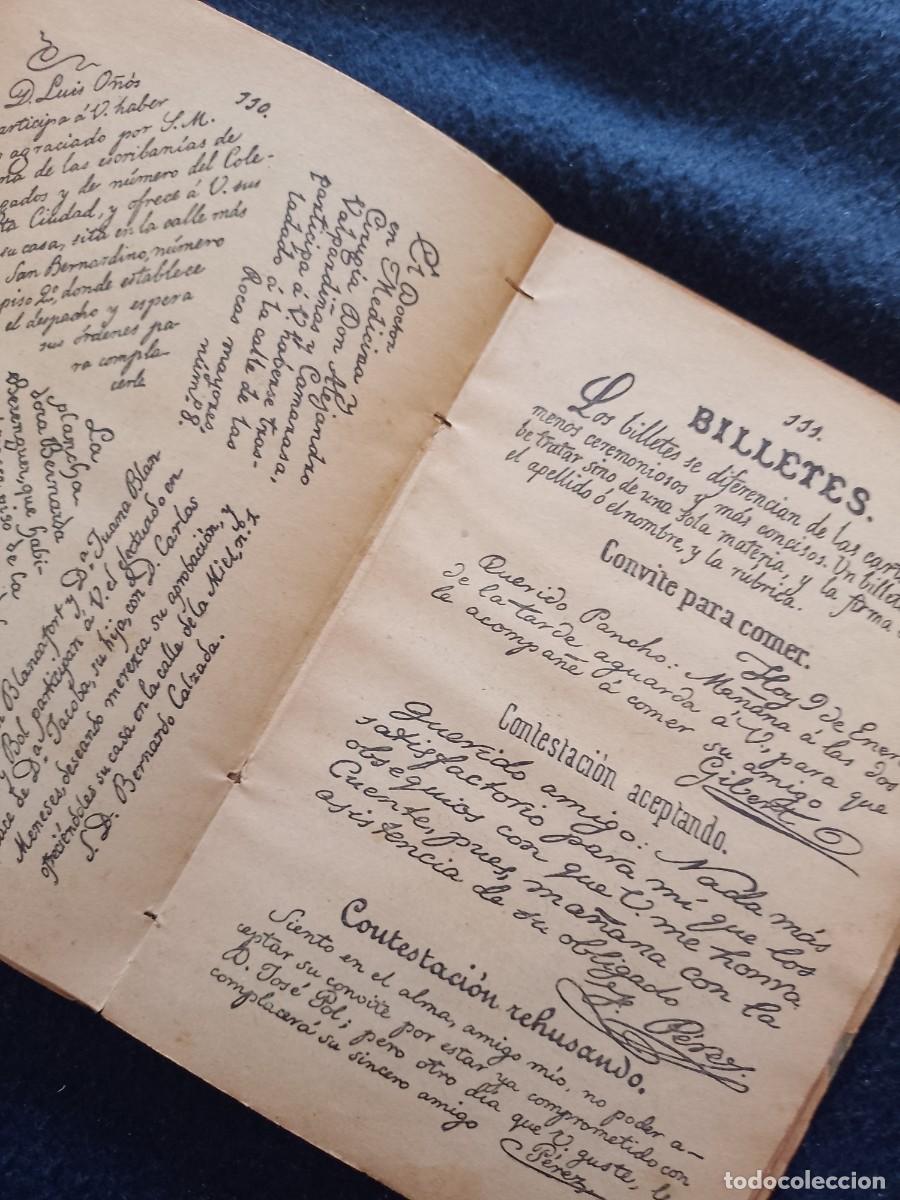 110.
D. Luis Oñós
articipa á V. haber
agraciado por S.M.
na de las escribanías de
gados y de número del Cole-
ta Ciudad, y ofrece á V. sus
su casa, sita en la calle más
San Bernardino, número
piso 2º, donde establece
el despacho y espera
sus órdenes pa-
ra compla-
cerle
El Doctor
en Medicina y
Cirugía Don Alejandro
Valpandinas y Camarasa,
participa á V. habérse tras-
ladado á la calle de las
Rocas mayores,
núm. 8.
La
plancha-
dora Bernarda
Berenguer, que habi-
piso de la
n Blancafort y Dª Juana Blan
y Bol participan á V. el efectuado en
ace de Dª Jacoba, su hija, con D. Carlos
Meneses, deseando merezca su aprobación, y
ofreciéndoles su casa en la calle de la Miel, nº 1
S. D. Bernardo Calzada.
111.
BILLETES.
Los billetes se diferencian de las cart
menos ceremoniosos y más concisos. Un billet
be tratar sino de una sola materia, y la firma
el apellido ó el nombre, y la rúbrica.
Convite para comer.
Hoy 9 de Ener
Querido Pancho: Mañana á las dos
de la tarde aguarda á V. para que
le acompañe á comer su amigo
Gibert
Contestación aceptando.
Querido amigo: Nada más
satisfactorio para mí que los
obsequios con que V. me honra
Cuente, pues, mañana con la
asistencia de su obligado
Pérez.
Contestación rehusando.
Siento en el alma, amigo mío, no poder a-
ceptar su convite por estar ya comprometido con
D. José Pol; pero otro día que V. guste, le
complacerá su sincero amigo
Pérez
todocoleccion